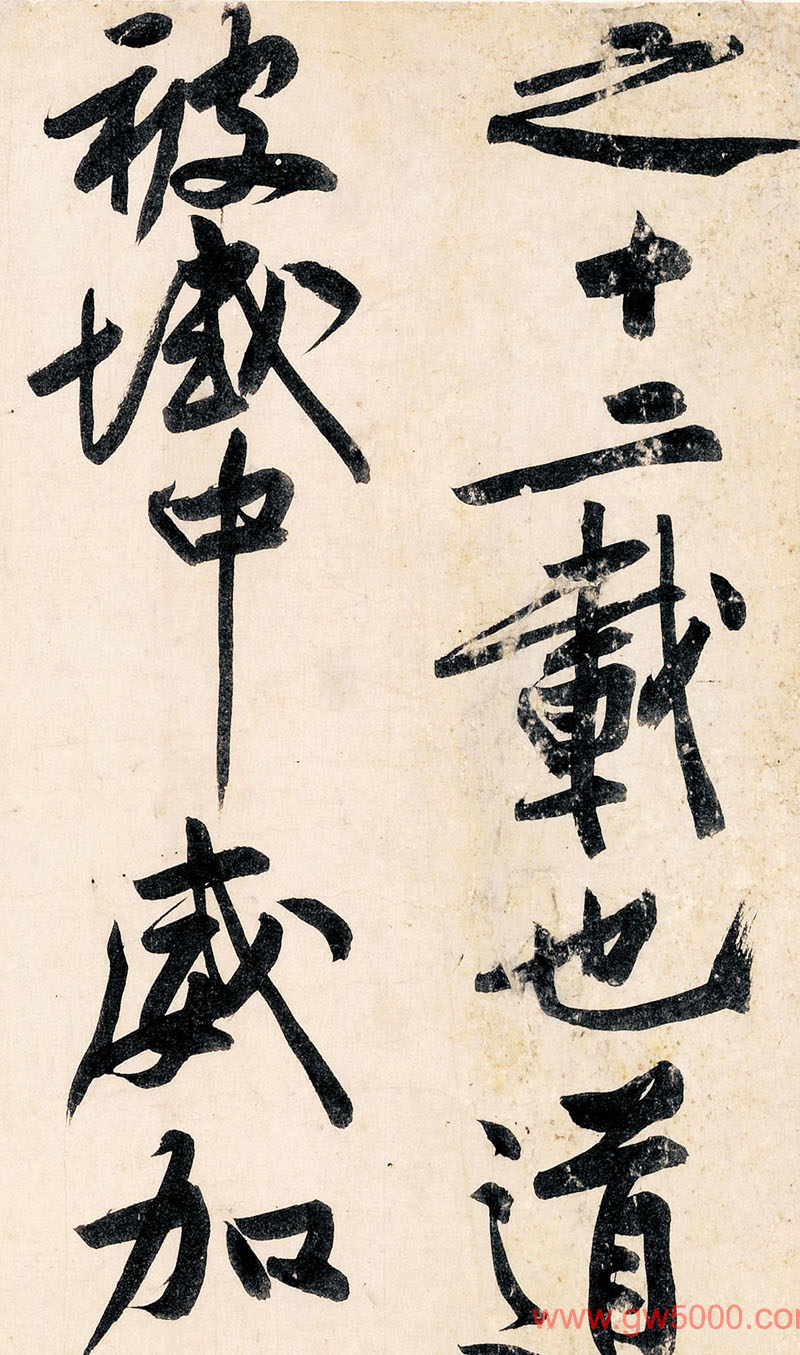 之十二載也道
被域中威加
www.gw5000.co